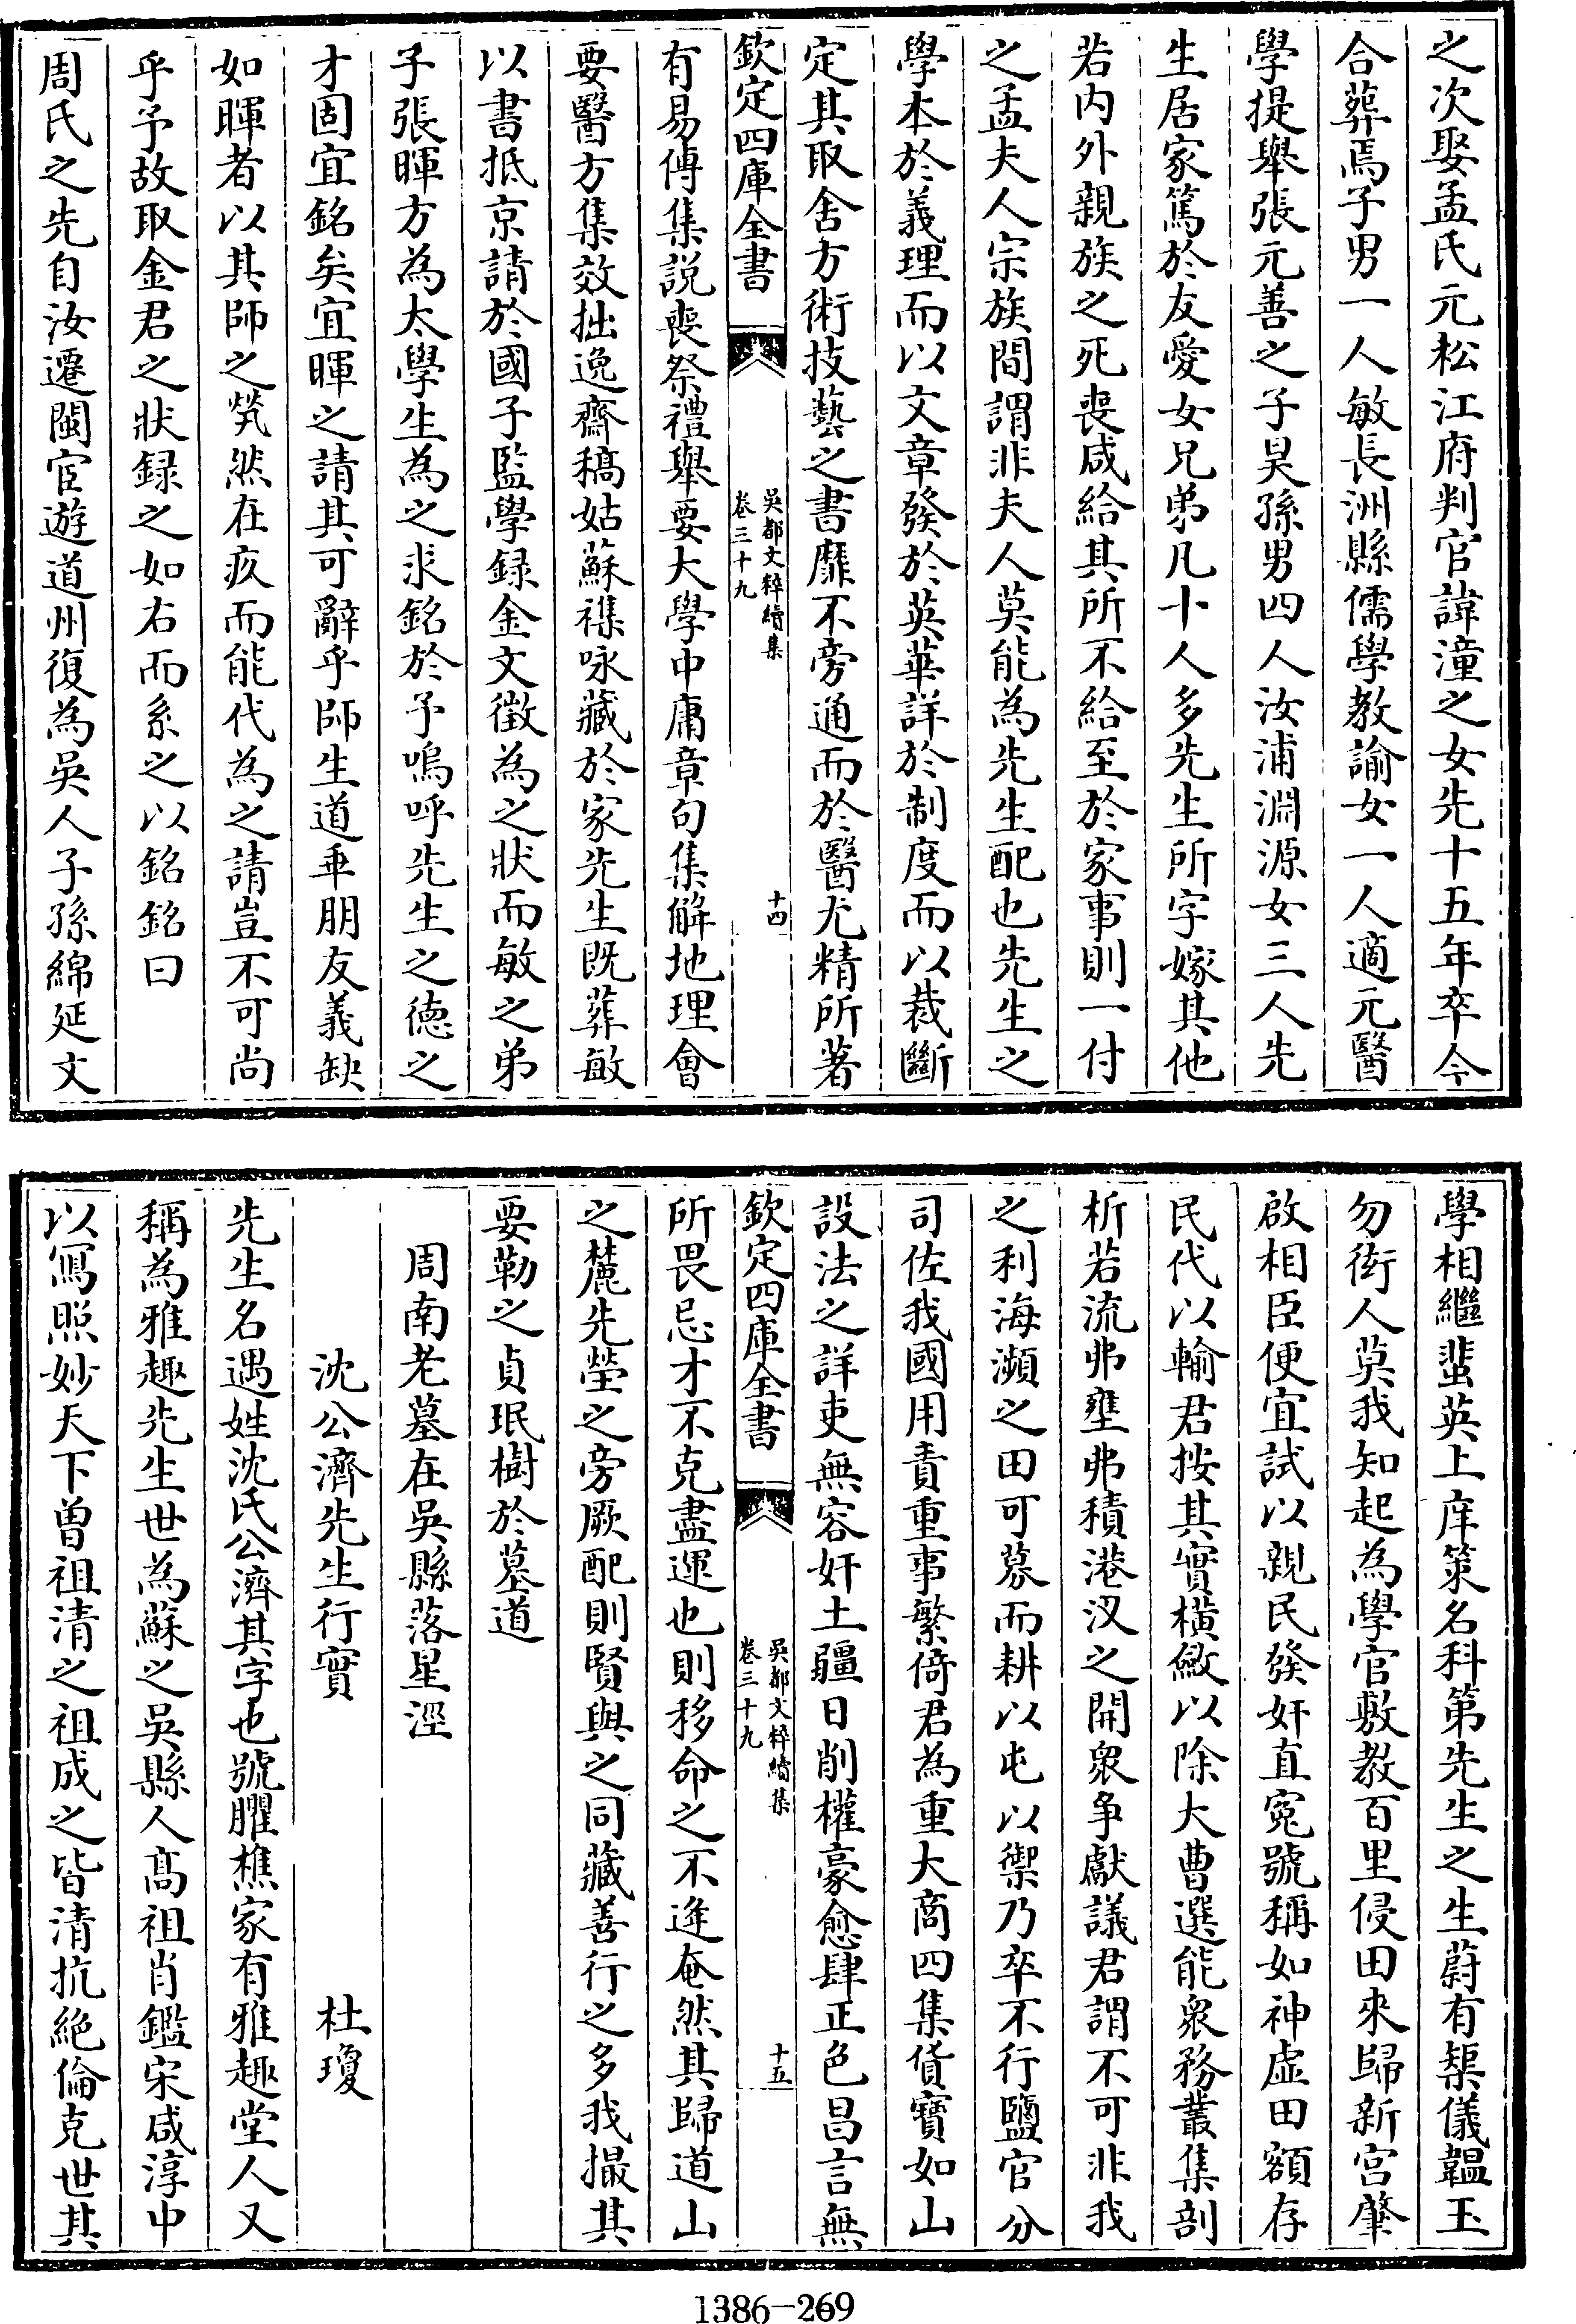 之次娶孟氏元松江府判官諱潼之女先十五年卒今
合葬焉子男一人敏長洲縣儒學教諭女一人適元醫
學提舉張元善之子昊孫男四人汝浦淵源女三人先
生居家篤於友愛女兄弟凡十人多先生所字嫁其他
若内外親族之死喪咸給其所不給至於家事則一付
之孟夫人宗族間謂非夫人莫能為先生配也先生之
學本於義理而以文章發於英華詳於制度而以裁斷
定其取舍方術技藝之書靡不旁通而於醫尤精所著
欽定四庫全書
吳都文粹續集
卷三十九
十四
有易傳集說喪祭禮舉要大學中庸章句集解地理會
要醫方集效拙逸齋稿姑蘇襍咏藏於家先生既葬敏
以書抵京請於國子監學録金文徵為之狀而敏之弟
子張暉方為太學生為之求銘於予嗚呼先生之德之
才固宜銘矣宜暉之請其可辭乎師生道乖朋友義缺
如暉者以其師之煢然在疚而能代為之請豈不可尚
乎予故取金君之狀録之如右而系之以銘銘曰
周氏之先自汝遷閩宦遊道州復為吳人子孫綿延文
學相繼蜚英上庠策名科第先生之生蔚有榘儀韞玉
勿衒人莫我知起為學官敷教百里侵田來歸新宫肇
啟相臣便宜試以親民發奸直寃號稱如神虚田額存
民代以輸君按其實橫斂以除大曹選能衆務叢集剖
析若流弗壅弗積港汊之開衆争獻議君謂不可非我
之利海瀕之田可募而耕以屯以禦乃卒不行鹽官分
司佐我國用責重事繁倚君為重大商四集貨寶如山
設法之詳吏無容奸土疆日削權豪愈肆正色昌言無
欽定四庫全書
吳都文粹續集
卷三十九
十五
所畏忌才不克盡運也則移命之不逢奄然其歸道山
之麓先塋之旁厥配則賢與之同藏善行之多我撮其
要勒之貞珉樹於墓道
周南老墓在吳縣落星涇
沈公濟先生行實 杜瓊
先生名遇姓沈氏公濟其字也號臞樵家有雅趣堂人又
稱為雅趣先生世為蘇之吳縣人髙祖肖鑑宋咸淳中
以寫照妙天下曽祖清之祖成之皆清抗絶倫克世其
1386-269